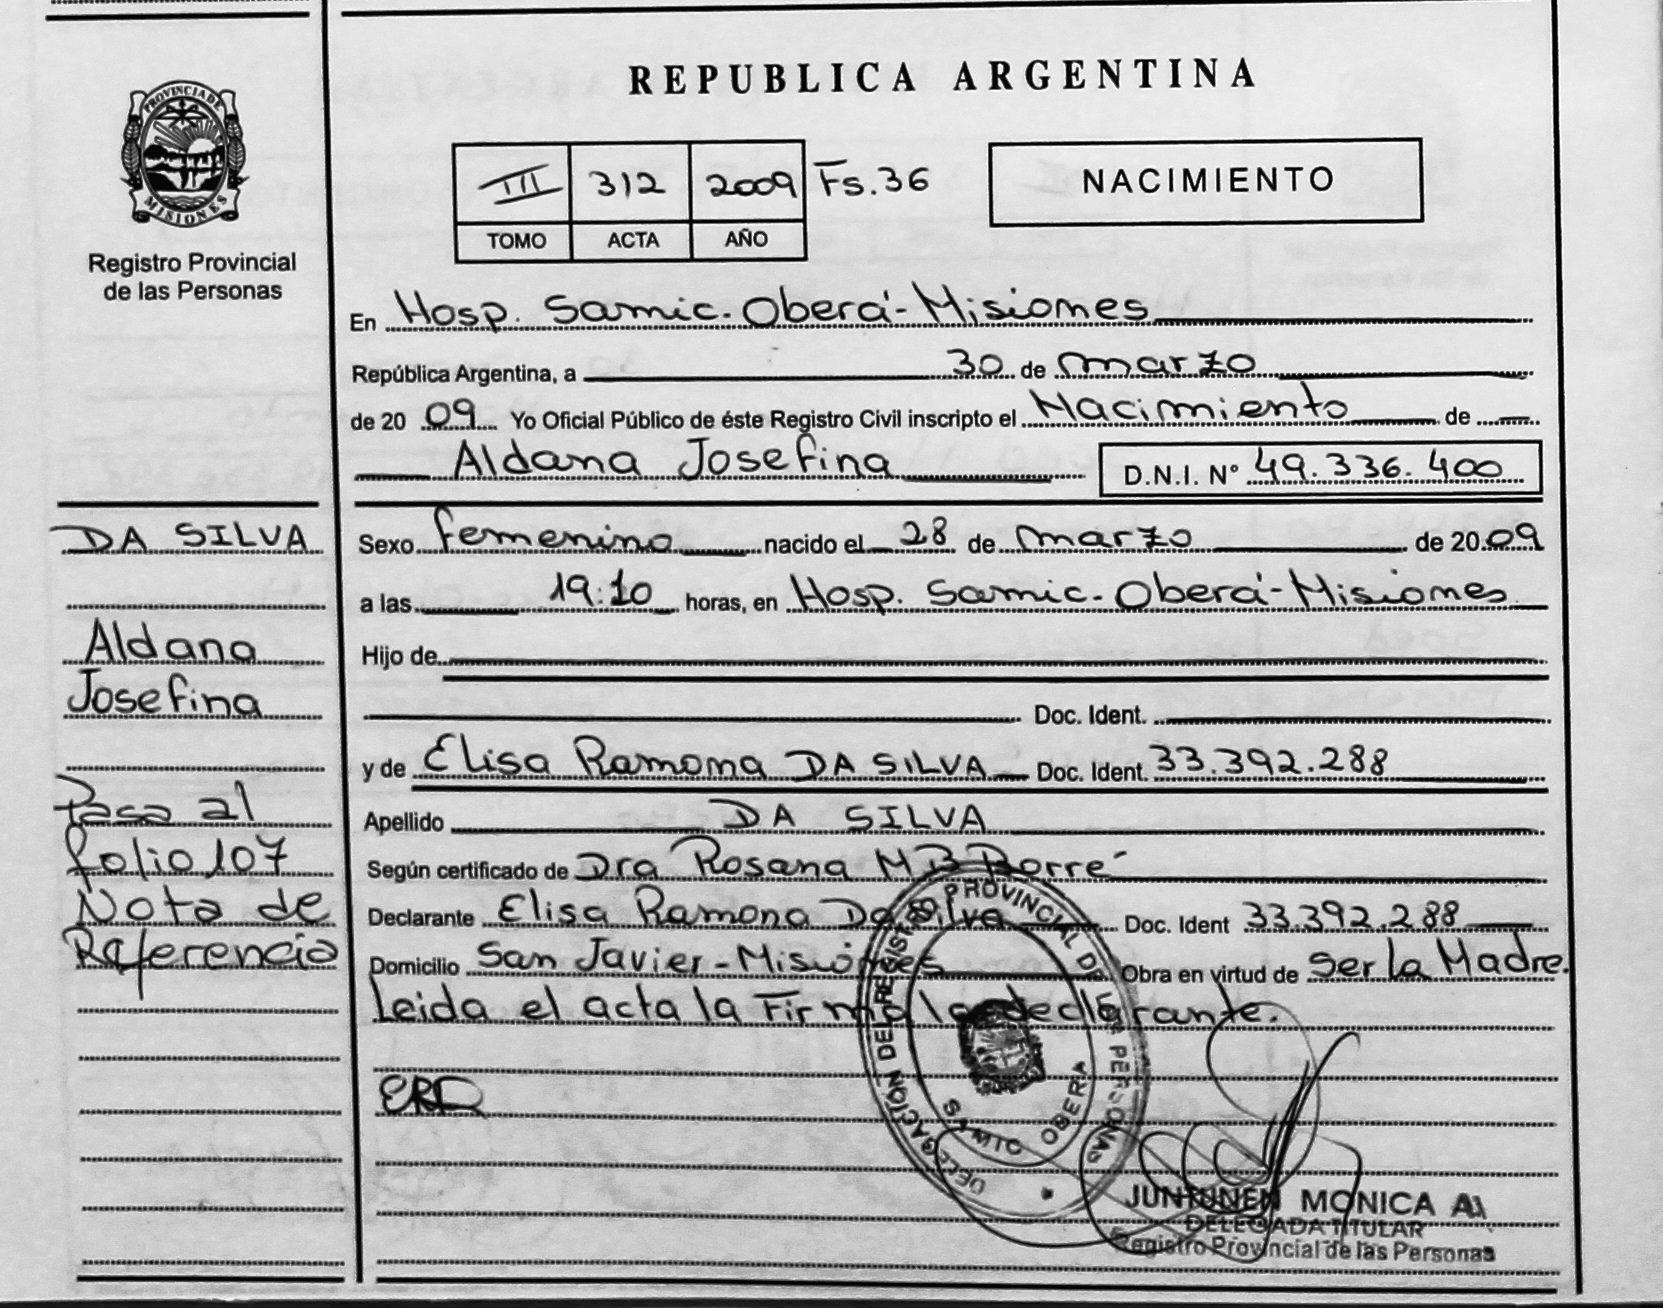 REPUBLICA ARGENTINA
PROVINCIA DE
MISIONES
Registro Provincial
de las Personas
III 312 2009 Fs.36
TOMO ACTA AÑO
NACIMIENTO
En Hosp. Samic. Oberá-Misiones
República Argentina, a 30 de marzo
de 20 09 Yo Oficial Público de éste Registro Civil inscripto el Nacimiento de
Aldana Josefina D.N.I. N° 49.336.400
DA SILVA
Aldana
Josefina
Pasa al
folio 107
Nota de
Referencia
Sexo femenino nacido el 28 de marzo de 20 09
a las 19:10 horas, en Hosp. Samic. Oberá-Misiones
Hijo de
Doc. Ident.
y de Elisa Ramona DA SILVA Doc. Ident. 33.392.288
Apellido DA SILVA
Según certificado de Dra Rosana M B Borré
Declarante Elisa Ramona Da Silva Doc. Ident 33.392.288
Domicilio San Javier-Misiones Obra en virtud de Ser la Madre.
Leida el acta la Firma la declarante.
DELEGACION DEL REGIST. PROVINCIAL DE LAS PERSONAS
SAMIC OBERA
JUNTUNEN MONICA A
DELEGADA TITULAR
Registro Provincial de las Personas